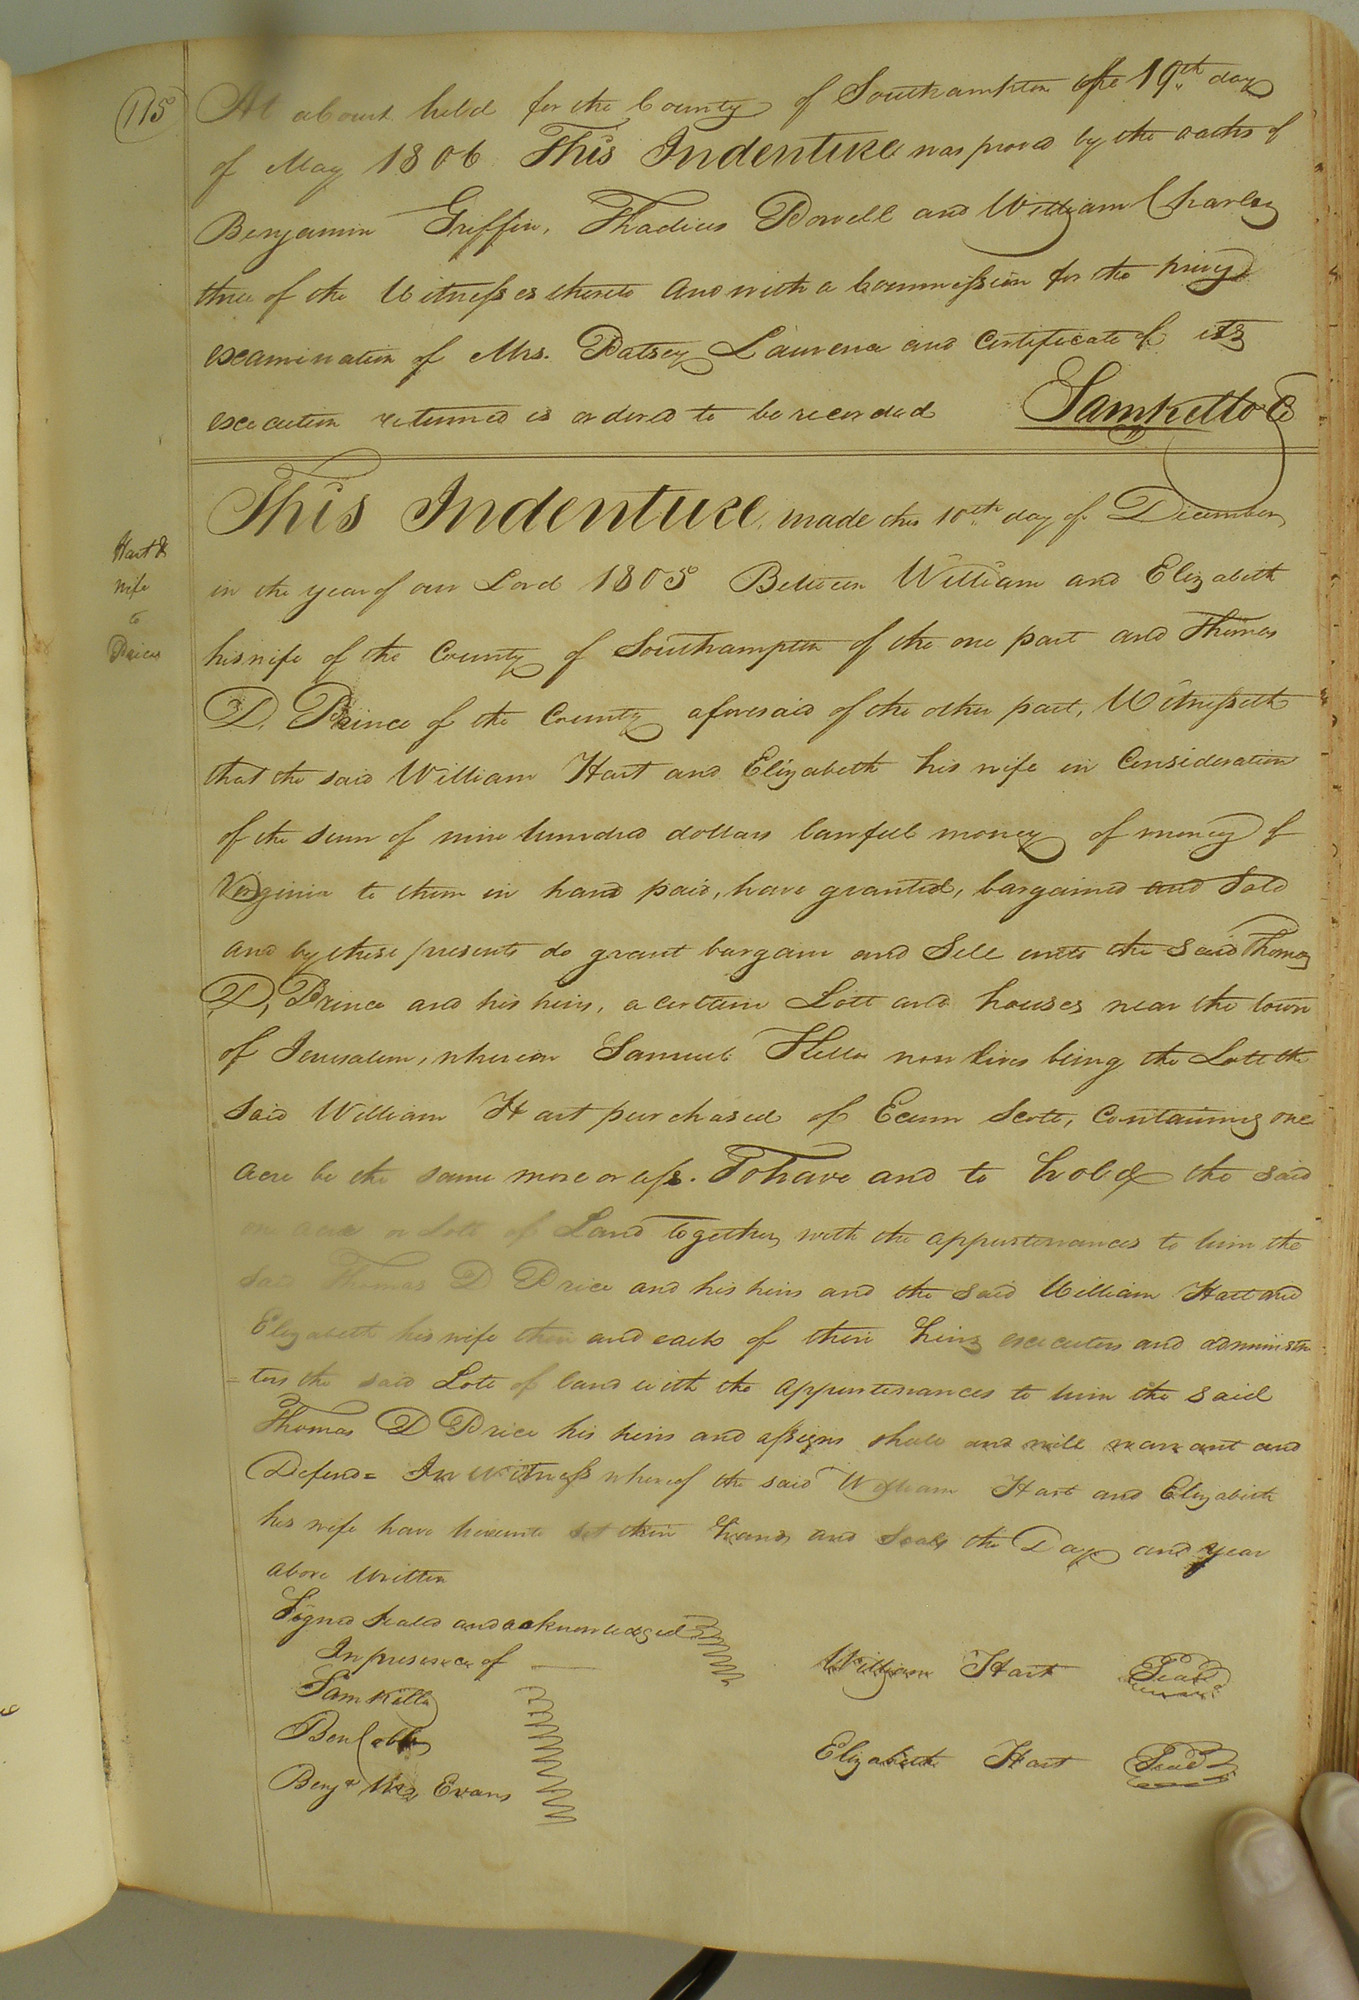 115
At a Court held for the County of Southampton the 19th day
of May 1806 This Indenture was proved by the oaths of
Benjamin Griffin, Thadieus Powell and William Charley
three of the Witnesses thereto And with a Commission for the privy
examination of Mrs. Patsey Laurence and Certificate of its
execution returned is ordered to be recorded Saml Kello Cl
Hart &
wife
to
Price
This Indenture, made this 10th day of December
in the year of our Lord 1805 Between William and Elizabeth
his wife of the County of Southampton of the one part and Thomas
D. Prince of the County aforesaid of the other part, Witnesseth
that the said William Hart and Elizabeth his wife in Consideration
of the sum of nine hundred dollars lawfull money of money of
Virginia to them in hand paid, have granted, bargained and Sold
and by these presents do grant bargain and Sell unto the said Thomas
D, Prince and his heirs, a certain Lott and houses near the town
of Jerusalem, whereon Samuel now lives being the Lott the
said William Hart purchased of Scott, Containing one
acre be the same more or less. To have and to hold the said
one acre or Lott of Land together with the appurtenances to him the
said Thomas D Price and his heirs and the said William Hart and
Elizabeth his wife their and each of their heirs executors and administra
=tors the said Lott of land with the appurtenances to him the said
Thomas D Price his heirs and assigns shall and will warrant and
Defend = In Witness whereof the said William Hart and Elizabeth
his wife have hereunto set their hands and Seals the Day and year
above written
Signed sealed and acknowledged
In presence of
William Hart Seal
Sam Kello
Ben Cobb
Elizabeth Hart Seal
Benja Evans